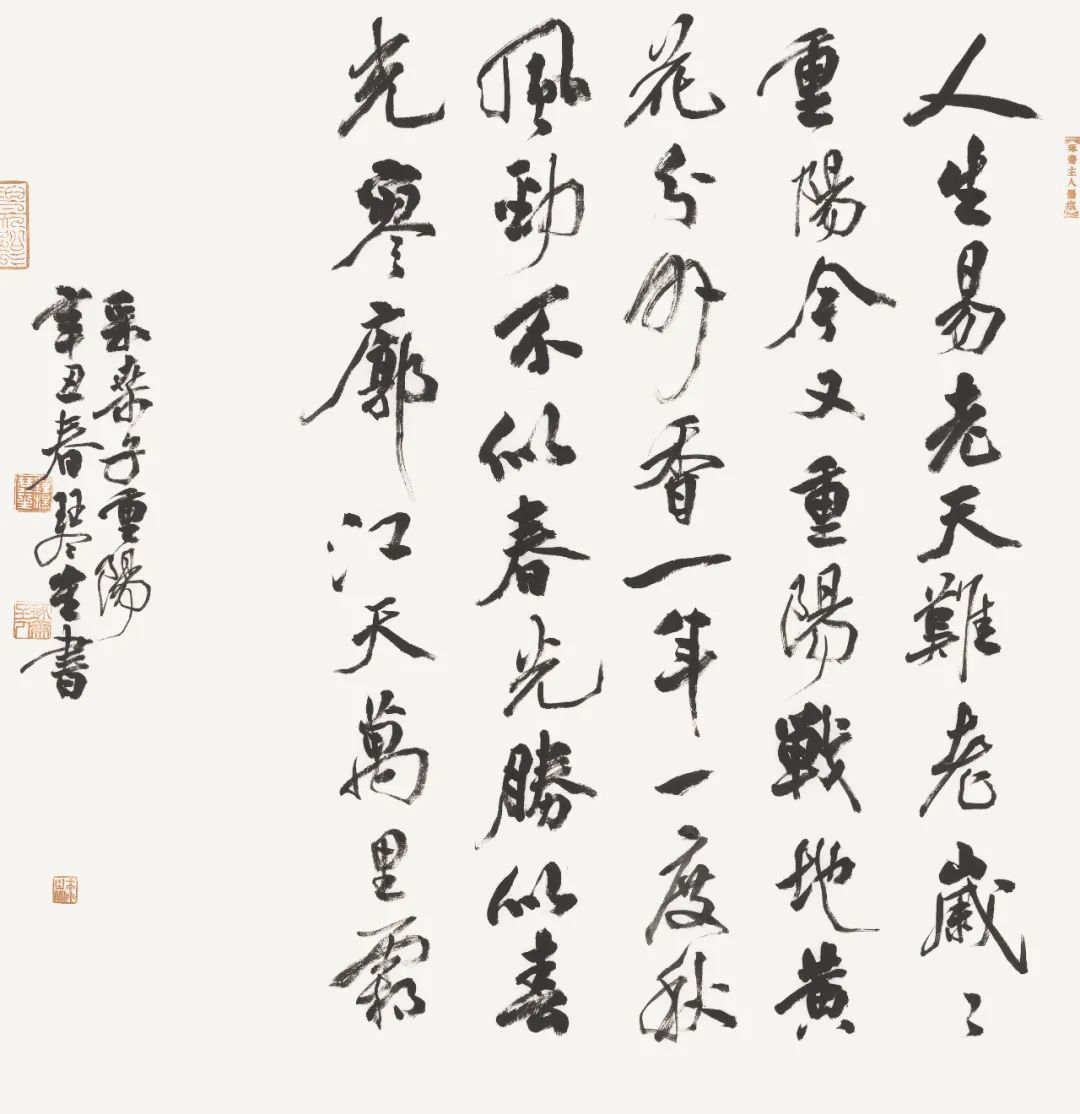 人生易老天難老歲〻
重陽今又重陽戰地黃
花分外香一年一度秋
風勁不似春光勝似春
光寥廓江天萬里霜
采桑子重陽
辛丑春琴生書